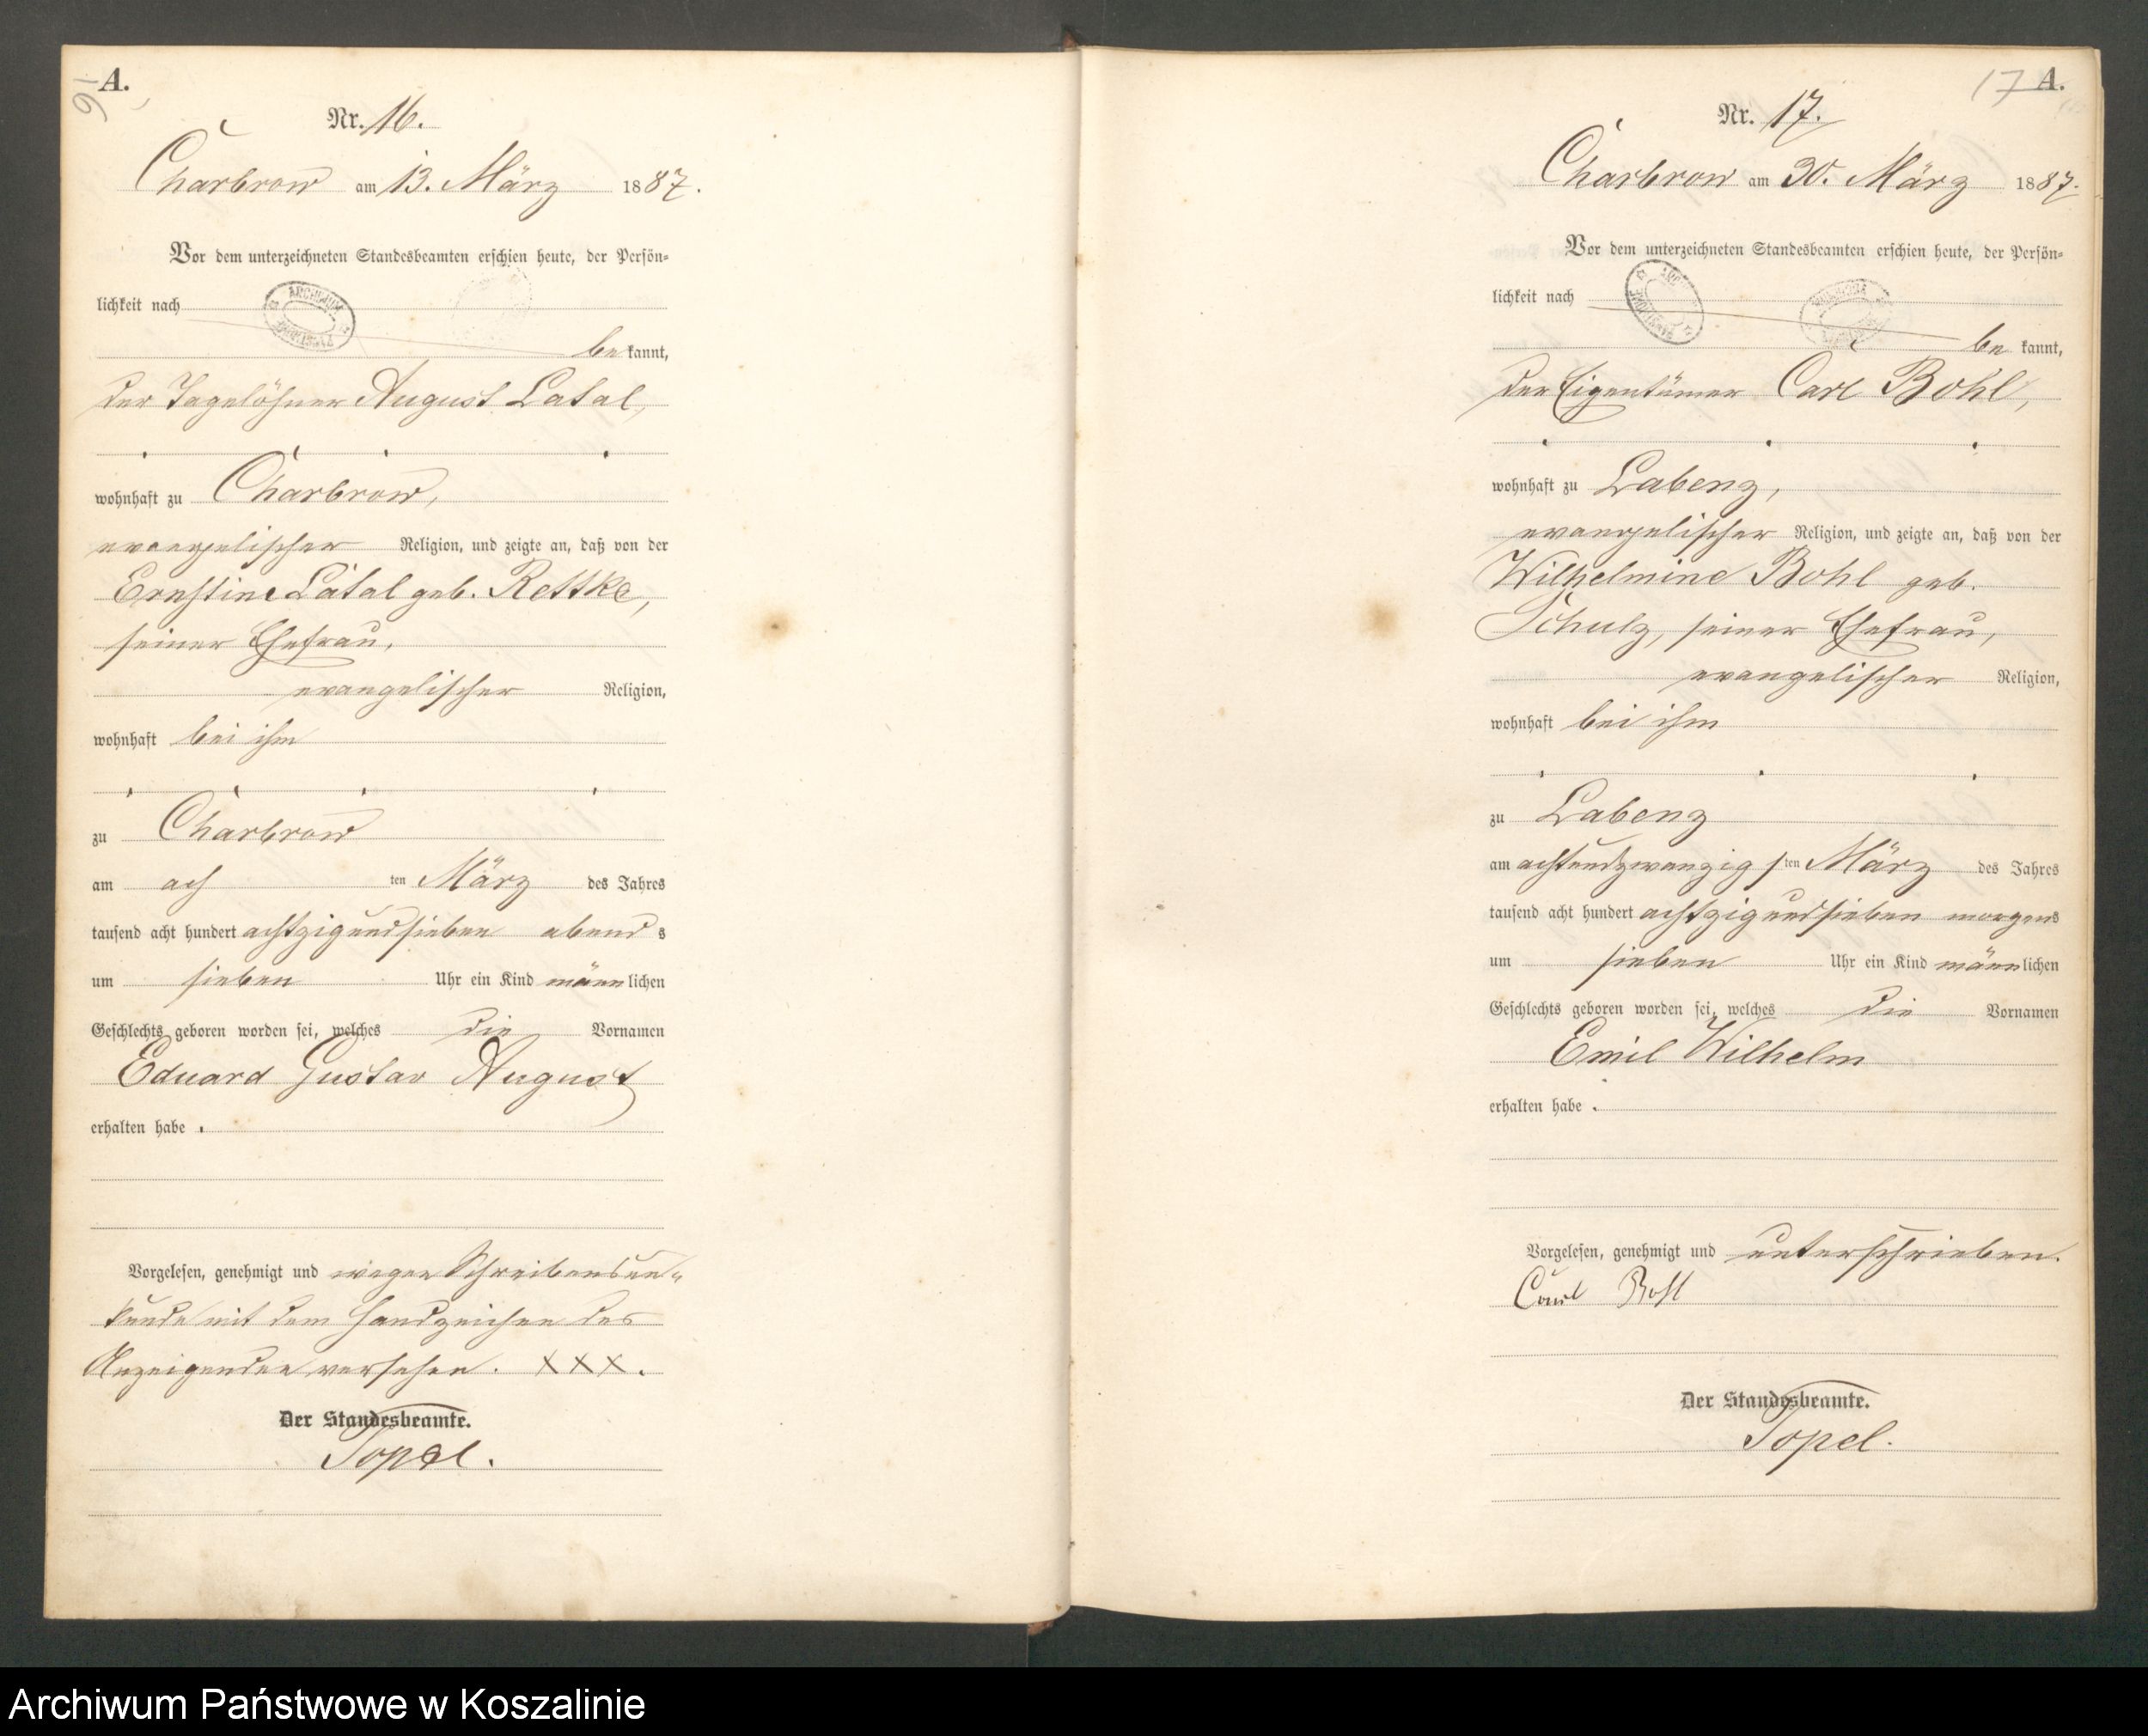 16
A.
Nr. 16.
Charbrow am 13. März 1887.
Vor dem unterzeichneten Standesbeamten erschien heute, der Persön-
lichkeit nach
be kannt,
der Tagelöhner August Latal,
wohnhaft zu Charbrow,
evangelischer Religion, und zeigte an, daß von der
Ernstine Latal geb. Rettke,
seiner Ehefrau,
evangelischer Religion,
wohnhaft bei ihm
zu Charbrow
am ach ten März des Jahres
tausend acht hundert achtzigundsieben abend s
um sieben Uhr ein Kind männ lichen
Geschlechts geboren worden sei, welches die Vornamen
Eduard Gustav August
erhalten habe .
Vorgelesen, genehmigt und wegen Schreibensun-
kunde mit dem Handzeichen des
Anzeigenden versehen. XXX.
Der Standesbeamte.
Topel.
17
A.
Nr. 17.
Charbrow am 30. März 1887.
Vor dem unterzeichneten Standesbeamten erschien heute, der Persön-
lichkeit nach
be kannt,
der Eigentümer Carl Bohl,
wohnhaft zu Labenz,
evangelischer Religion, und zeigte an, daß von der
Wilhelmine Bohl geb.
Schulz, seiner Ehefrau,
evangelischer Religion,
wohnhaft bei ihm
zu Labenz
am achtundzwanzig sten März des Jahres
tausend acht hundert achtzigundsieben morgens
um sieben Uhr ein Kind männ lichen
Geschlechts geboren worden sei, welches die Vornamen
Emil Wilhelm
erhalten habe .
Vorgelesen, genehmigt und unterschrieben.
Carl Bohl
Der Standesbeamte.
Topel.
Archiwum Państwowe w Koszalinie